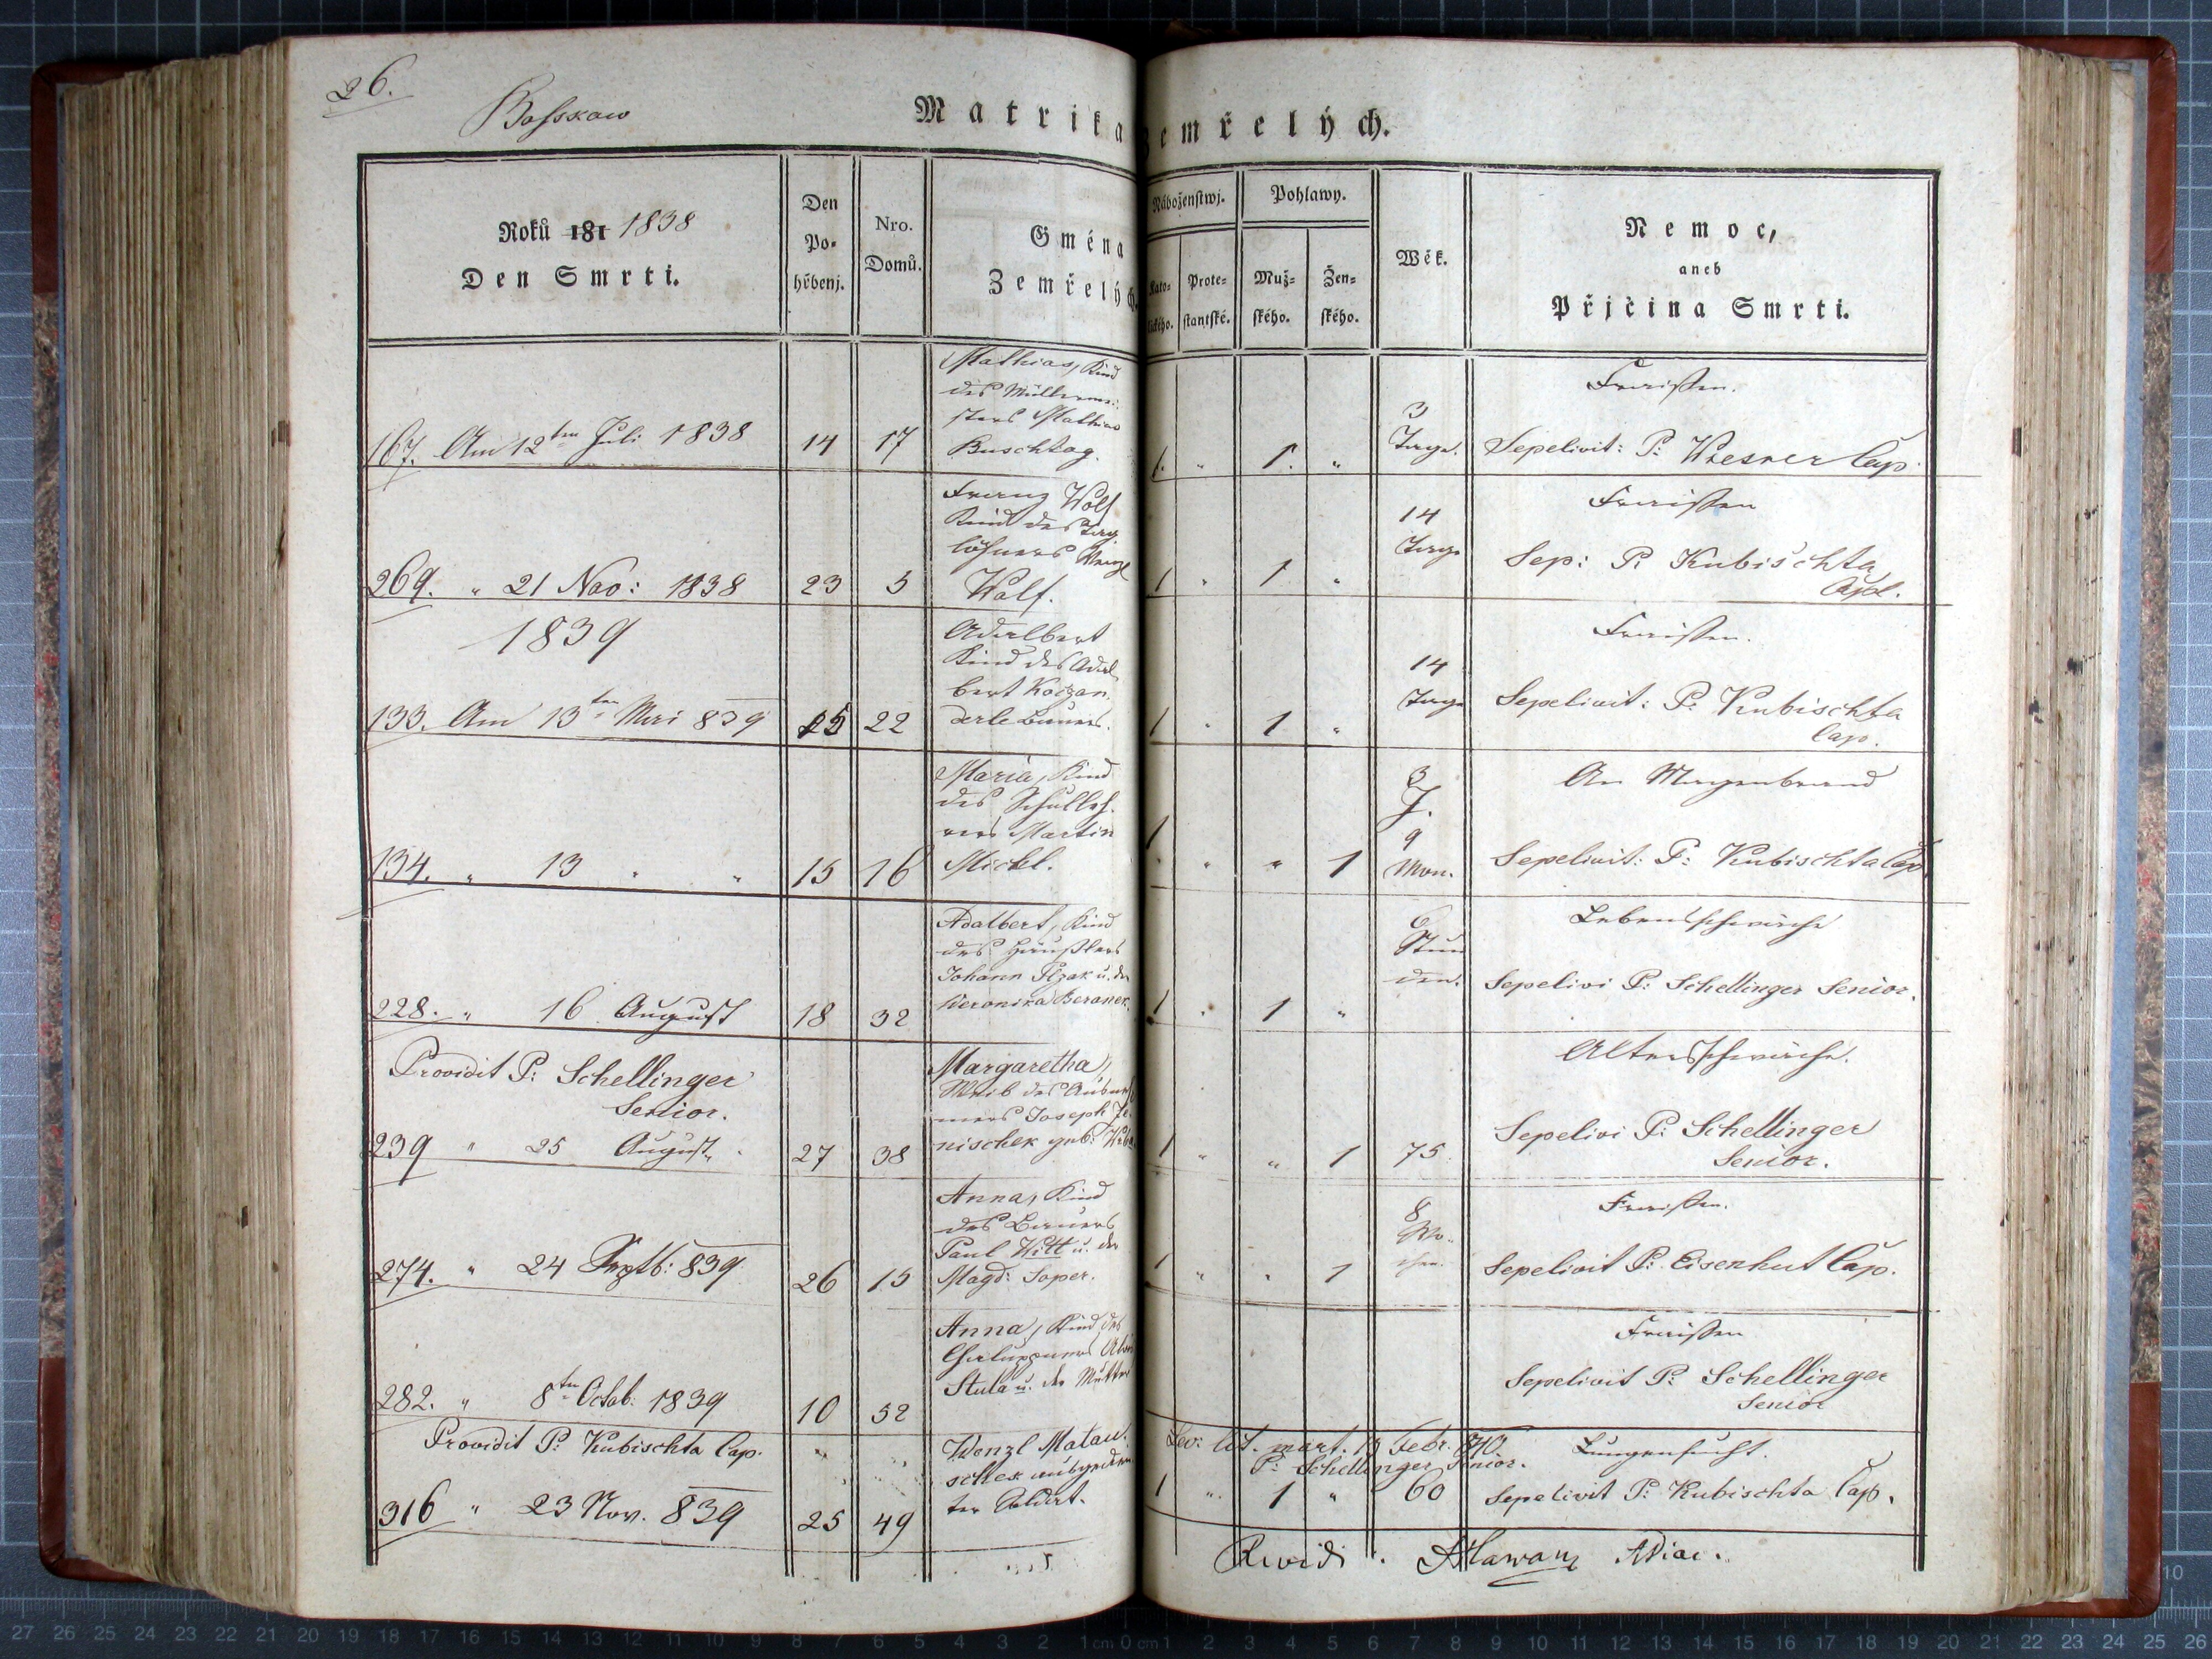 26.
Bosskow
Matrika zemřelých.
Roků 181 1838
Den Smrti.
Den Pohřbenj.
Nro. Domů.
Gména Zemřelých.
Náboženstwj.
Katolického.
Protestantské.
Pohlawy.
Mužského.
Ženského.
Wěk.
Nemoc,
aneb
Přjčina Smrti.
Mathias, Kind
des Müllermei-
sters Mathias
167. Am 12ten Juli 1838 14 17 Buschtog.
1. " 1. " 3 Tage.
Fraisen.
Sepelivit: P: Wiesner Cap.
Franz Wolf
Kind des Tag
löhners Wenzl
269. " 21 Nov: 1838 23 5 Wolf.
1 " 1 " 14 Tage
Fraisen
Sep: P: Kubischta
Capl.
1839
Adalbert
Kind des Adal
bert Koczan
133. Am 13ten Mai 839 15 22 derle Bauers.
1 " 1 " 14 Tage
Fraisen.
Sepelivit: P: Kubischta
Cap.
Maria, Kind
des Schulleh-
rers Martin
134. " 13 " " 15 16 Mickl.
1 " " 1 3 J. 9 Mon.
An Magenbrand
Sepelivit: P: Kubischta Cap
Adalbert, Kind
des Häuslers
Johann Flzak u. der
228. " 16 August 18 32 Veronika Beranek.
1 " 1 " 6 Stunden.
Lebensschwäche
Sepelivi P: Schellinger Senior.
Providit P: Schellinger
Senior.
Margaretha,
Weib des
Joseph Je-
239 " 25 August " 27 38 nischek geb:
1 " " 1 75
Altersschwäche.
Sepelivi P: Schellinger
Senior.
Anna, Kind
des Bauers
Paul Witt u. der
274. " 24 Septb: 839 26 15 Magd: Soper.
1 " " 1 8 Wochen.
Fraisen.
Sepelivit P: Eisenhut Cap.
Anna, Kind des
Chaluppners
Stula u. der Mutter
282. " 8ten Octob: 1839 10 52
Fraisen
Sepelivit P: Schellinger
Senior
Lev: lit. mort. 13 Febr. 840.
P: Schellinger Senior.
Providit P: Kubischta Cap.
Wenzl Matau-
schek ausgedien
316 " 23 Nov. 839 25 49 ter Soldat.
1 " 1 " 60
Lungensucht.
Sepelivit P: Kubischta Cap.
Revidi.